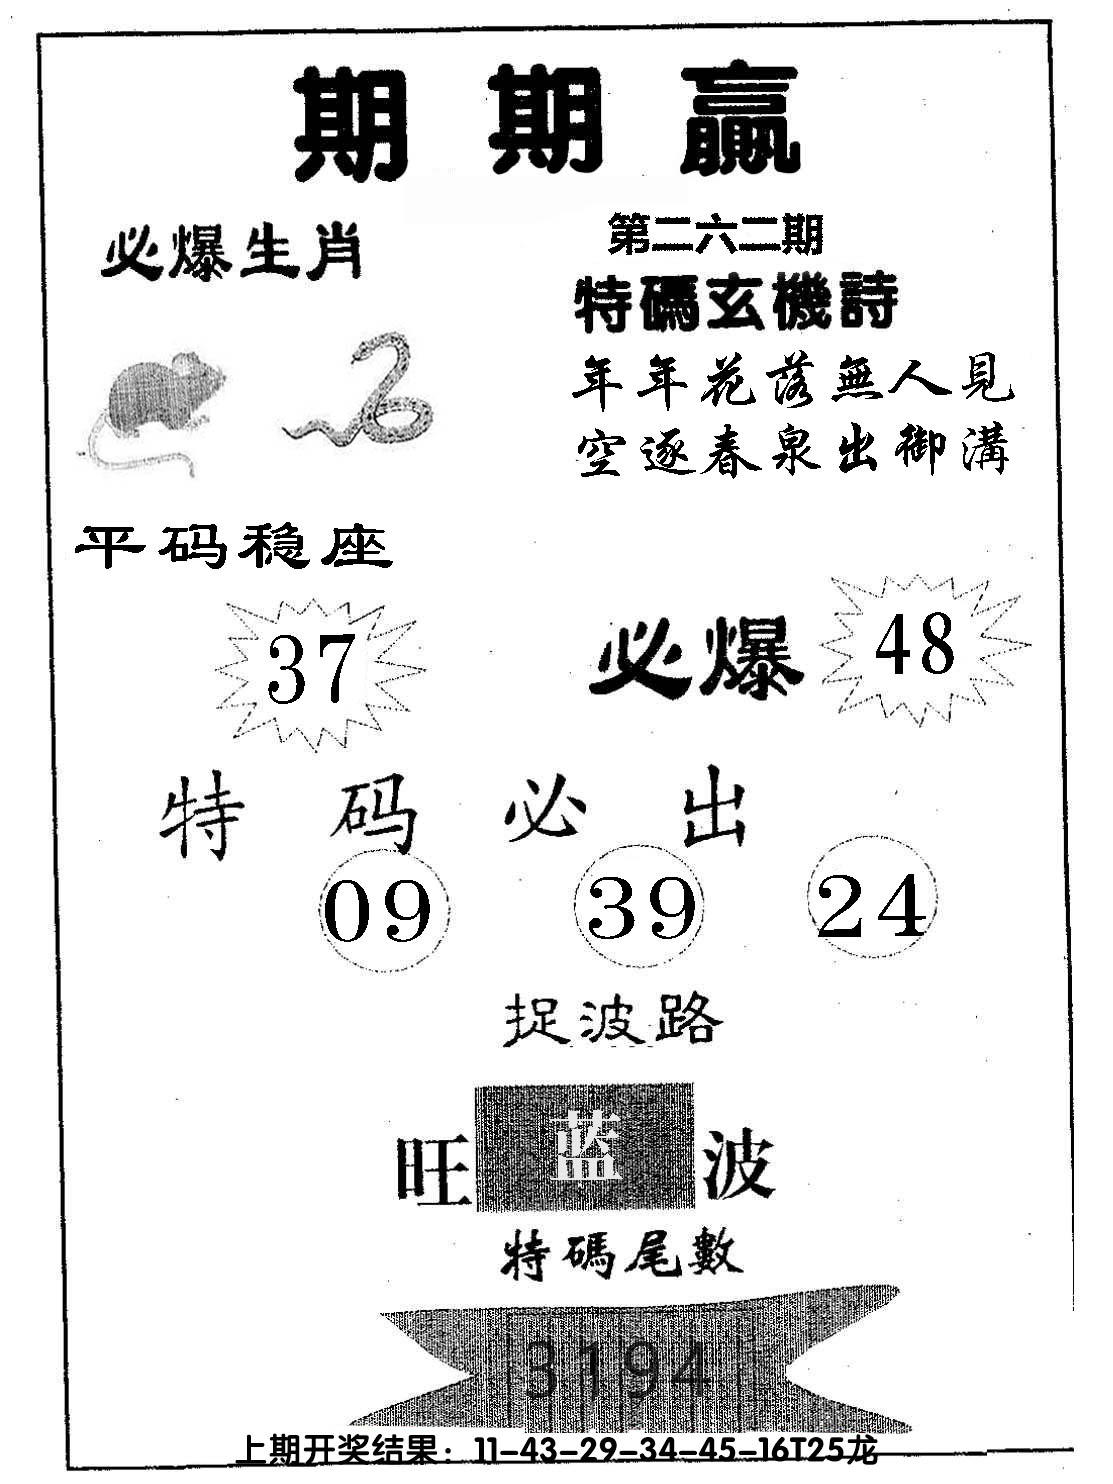 期期赢
必爆生肖
第二六二期
特碼玄機詩
年年花落無人見
空逐春泉出御溝
平码稳座
37
必爆 48
特码必出
09 39 24
捉波路
旺蓝波
特碼尾數
3194
上期开奖结果：11-43-29-34-45-16T25龙